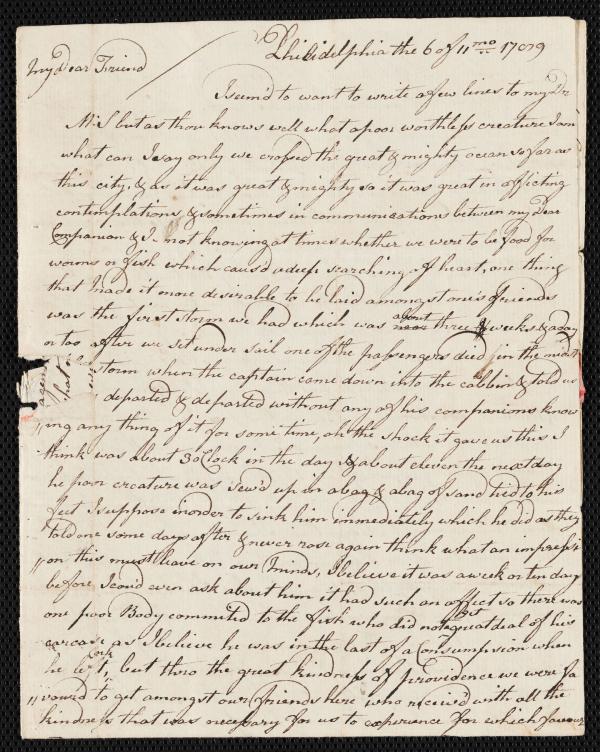 Philidelphia the 6 of 11mo 1709
My Dear Friend
I seem'd to want to write a few lines to my Dr
M: S but as thou knows well what a poor worthless creature I am
what can I say only we crossed the great & mighty ocean so far as
this city, & as it was great & mighty so it was great in afflicting
contemplations, & sometimes in communications between my Dear
Companion & I, not knowing at times whether we were to be food for
worms or fish which caus'd a deep searching of heart, one thing
that made it more desirable to be laid amongst one's friends
was the first storm we had which was about three weeks & a day
or too after we set under sail one of the passengers died in the midst
storm when the captain came down into the cabbin & told us
departed & departed without any of his companions know
ing any thing of it for some time, oh the shock it gave us this I
think was about 3 oClock in the day & about eleven the next day
he poor creature was sew'd up in a bag & a bag of sand tied to his
feet I suppose in order to sink him immediately which he did as they
told one some days after & never rose again think what an impressi
on this must have on our minds, I believe it was a week or ten day
before I coud even ask about him it had such an affect so there was
one poor Body commited to the fish who did not get great deal of his
carcase as I believe he was in the last of a Consumpsion when
he, but thro the great kindness of providence we were fa
vourd to get amongst our friends here who recived with all the
kindness that was necessary for us to experience for which favour